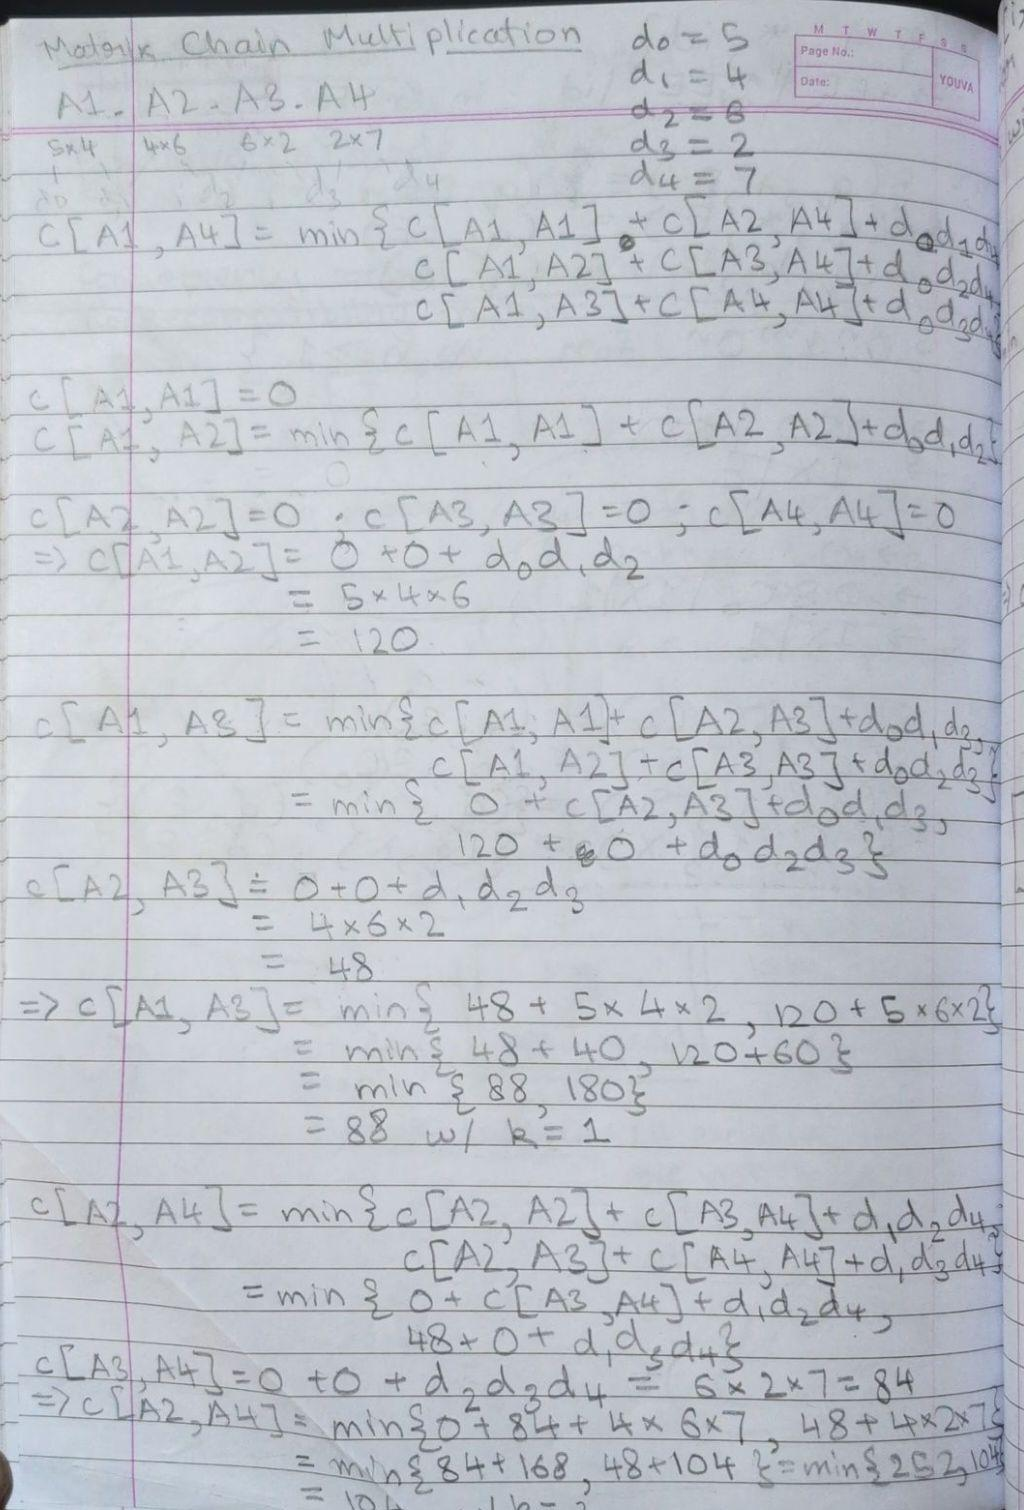 Matrix Chain Multiplication
d0 = 5
M T W T F S S
Page No.:
Date:
YOUVA
d1 = 4
A1. A2. A3. A4
d2 = 6
5x4 4x6 6x2 2x7
d3 = 2
d4 = 7
d0 d2 d3 d4
C[A1, A4] = min{C[A1, A1] + C[A2, A4] + d0d1d4
C[A1, A2] + C[A3, A4] + d0d2d4
C[A1, A3] + C[A4, A4] + d0d3d4}
C[A1, A1] = 0
C[A1, A2] = min{C[A1, A1] + C[A2, A2] + d0d1d2}
C[A2, A2] = 0 ; C[A3, A3] = 0 ; C[A4, A4] = 0
=> C[A1, A2] = 0 + 0 + d0d1d2
= 5x4x6
= 120
C[A1, A3] = min{C[A1, A1] + C[A2, A3] + d0d1d3,
C[A1, A2] + C[A3, A3] + d0d2d3}
= min{ 0 + C[A2, A3] + d0d1d3,
120 + 0 + d0d2d3}
C[A2, A3] = 0+0+d1d2d3
= 4x6x2
= 48
=> C[A1, A3] = min{ 48 + 5x4x2, 120 + 5x6x2}
= min{ 48 + 40, 120+60}
= min {88, 180}
= 88 w/ k = 1
C[A2, A4] = min{C[A2, A2] + C[A3, A4] + d1d2d4,
C[A2, A3] + C[A4, A4] + d1d3d4}
= min { 0 + C[A3, A4] + d1d2d4,
48 + 0 + d1d3d4}
C[A3, A4] = 0 + 0 + d2d3d4 = 6x2x7 = 84
=> C[A2, A4] = min{0 + 84 + 4x6x7, 48 + 4x2x7}
= min{84+168, 48+104} = min{252, 104}
= 104